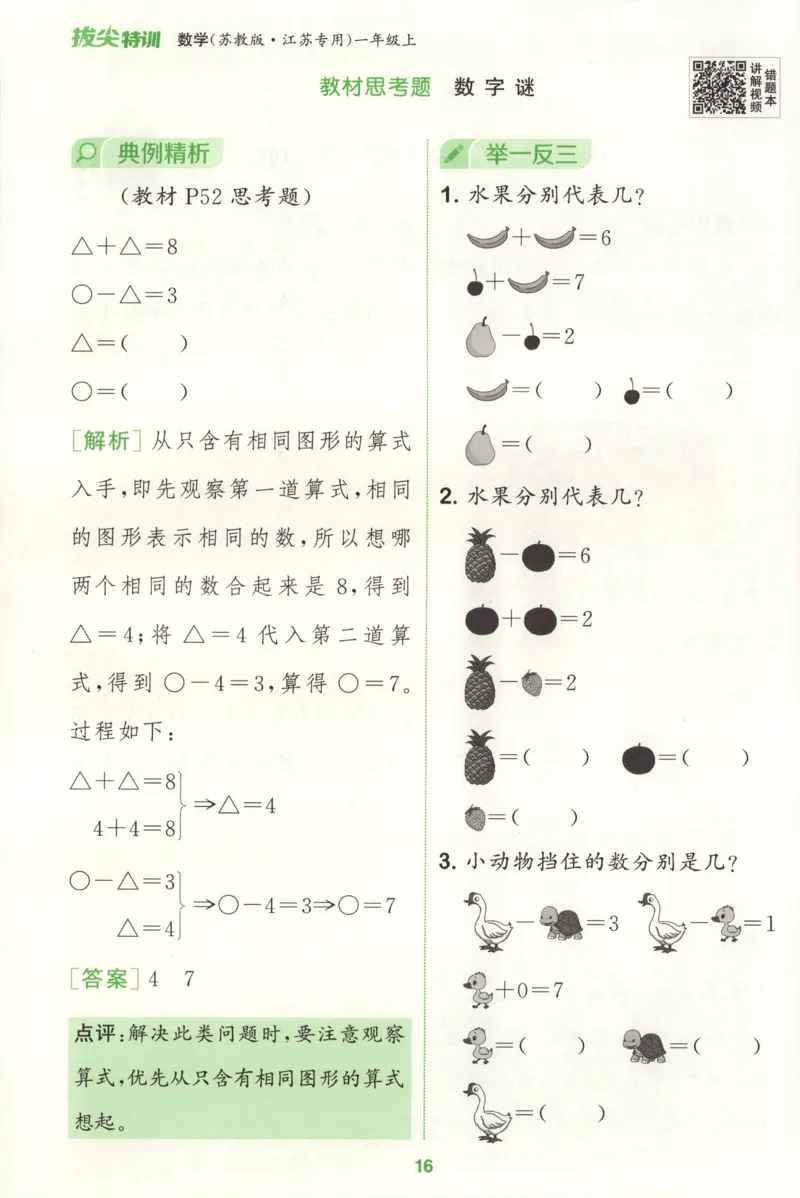 拔尖特训 数学(苏教版·江苏专用)一年级上
教材思考题 数字谜
讲解视频
错题本
典例精析
(教材 P52 思考题)
△+△=8
○-△=3
△=( )
○=( )
[解析] 从只含有相同图形的算式
入手,即先观察第一道算式,相同
的图形表示相同的数,所以想哪
两个相同的数合起来是 8,得到
△=4;将 △=4 代入第二道算
式,得到 ○-4=3,算得 ○=7。
过程如下:
△+△=8
4+4=8
⇒△=4
○-△=3
△=4
⇒○-4=3⇒○=7
[答案] 4 7
点评:解决此类问题时,要注意观察
算式,优先从只含有相同图形的算式
想起。
举一反三
1. 水果分别代表几?
+ =6
+ =7
- =2
=( ) =( )
=( )
2. 水果分别代表几?
- =6
+ =2
- =2
=( ) =( )
=( )
3. 小动物挡住的数分别是几?
- =3 - =1
+0=7
=( ) =( )
=( )
16